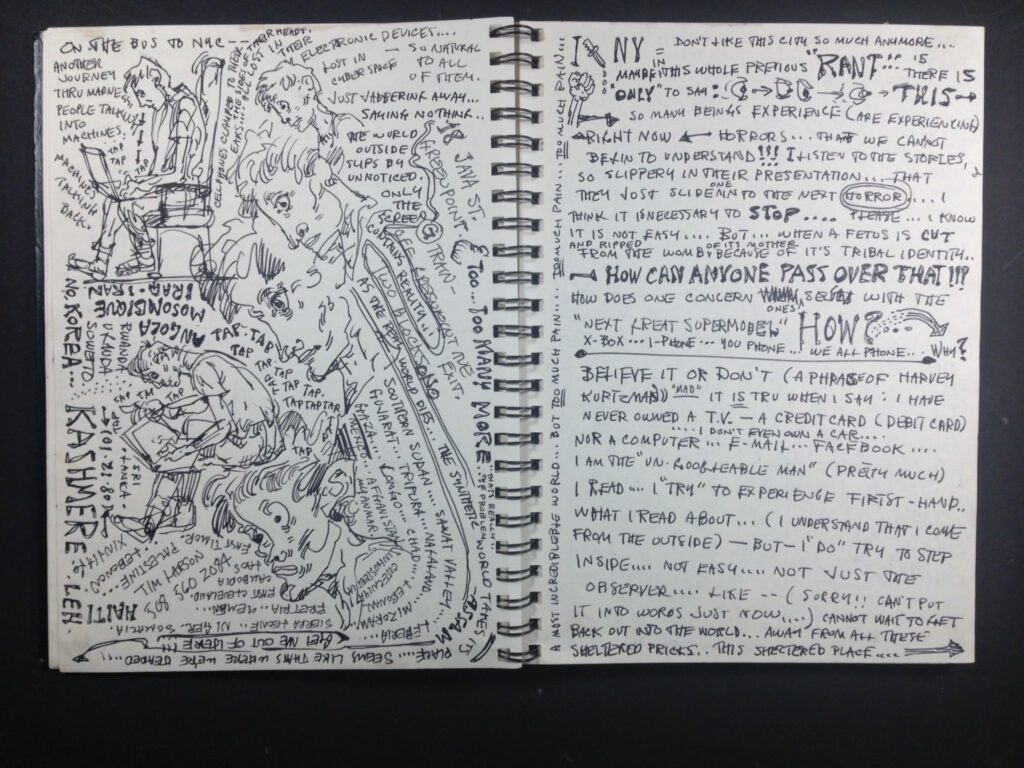 ON THE BUS TO NYC---
ANOTHER
JOURNEY
THRU MADNESS
PEOPLE TALKING
INTO
MACHINES.
TAP
TAP
TAP
MACHINES
TALKINK
BACK.
CELLPHONES CLAMPED TO THEIR
EARS... THE
SIDES OF THEIR HEADS.
LOST IN
THEIR
ELECTRONIC DEVICES....
LOST IN
CYBERSPACE
— SO NATURAL
TO ALL
OF THEM.
JUST JABBERINK AWAY...
SAYING NOTHINK..
THE WORLD
OUTSIDE
SLIPS BY
UNNOTICED.
ONLY
THE
SCREEN
CONTAINS REALITY..!
AS THE REAL WORLD DIES... THE SYNTHETIC
WORLD TAKES ITS
PLACE.... SEEMS LIKE THATS WHERE WE'RE HEADED....
GET ME OUT OF HERE!!!
18 JAVA ST.
GREENPOINT
G TRAIN-
GREENPOINT AVE
EXIT.
TWO BLOCKS
& TOO... TOO MANY MORE..
NO. KOREA...
KASHMERE. LEH.
HAITI
MOSOMBIQUE
IRAQ. IRAN
ANGOLA
RWANDA
UGANDA
SOWETO
TAP. TAP
TAP
TAP
TAP
TAP
TAP TAP TAP
TAP
SRI
LANKA.
←101.21.80.→
XINJIANG
LEBANON
PALESTINE.
EAST TIMOR.
NORTH PHIL
LAOS
CAMBODIA
EAST CLEVELAND.
ERETRIA.. YEMEN..
SIERRA LEONE.. NIGER. SOMALIA.
SOUTHERN SUDAN.... SWAT VALLEY...
GUJARAT... TRIPURA... NAGALAND..
GAZA... CONGO... CHAD...
MEXICO.. AFGANISTAN
MYANMAR
CHECHNYA
LEBANON
MIZORAM.
LIBERIA.
ASSAM
I NY DON'T LIKE THIS CITY SO MUCH ANYMORE....
MAYBE IN THIS WHOLE PREVIOUS "RANT"... IS THERE IS
"ONLY" TO SAY: → THIS →
SO MANY BEINGS EXPERIENCE (ARE EXPERIENCING)
RIGHT NOW ← HORRORS... THAT WE CANNOT
BEGIN TO UNDERSTAND!!! I LISTEN TO THE STORIES,
SO SLIPPERY IN THEIR PRESENTATION... THAT
THEY JUST SLIDE ONE INTO THE NEXT HORROR.... I
THINK IT IS NECESSARY TO STOP.... PLEASE... I KNOW
IT IS NOT EASY.... BUT... WHEN A FETUS IS CUT
AND RIPPED FROM THE WOMB OF ITS MOTHER BECAUSE OF IT'S TRIBAL IDENTITY..
— HOW CAN ANYONE PASS OVER THAT!!!
HOW DOES ONE CONCERN ONES SELF WITH THE
"NEXT GREAT SUPERMODEL" HOW?....
X-BOX... I-PHONE... YOU PHONE... WE ALL PHONE... WHY?
BELIEVE IT OR DON'T (A PHRASE OF HARVEY
KURTZMAN)) "MAD" IT IS TRU WHEN I SAY: I HAVE
NEVER OWNED A T.V. — A CREDIT CARD (DEBIT CARD)
.... I DON'T EVEN OWN A CAR....
NOR A COMPUTER... E-MAIL.... FACEBOOK....
I AM THE "UN-GOOGLEABLE MAN" (PRETTY MUCH)
I READ.... I "TRY" TO EXPERIENCE FIRST-HAND..
WHAT I READ ABOUT... (I UNDERSTAND THAT I COME
FROM THE OUTSIDE) — BUT — I "DO" TRY TO STEP
INSIDE.... NOT EASY.... NOT JUST THE
OBSERVER.... LIKE -- (SORRY!! CAN'T PUT
IT INTO WORDS JUST NOW....) CANNOT WAIT TO GET
BACK OUT INTO THE WORLD... AWAY FROM ALL THESE
SHELTERED PRICKS.. THIS SHELTERED PLACE....
A MOST INCREDIBLE WORLD... BUT TOO MUCH PAIN... TOO MUCH PAIN... TOO MUCH PAIN... TOO MUCH PAIN...